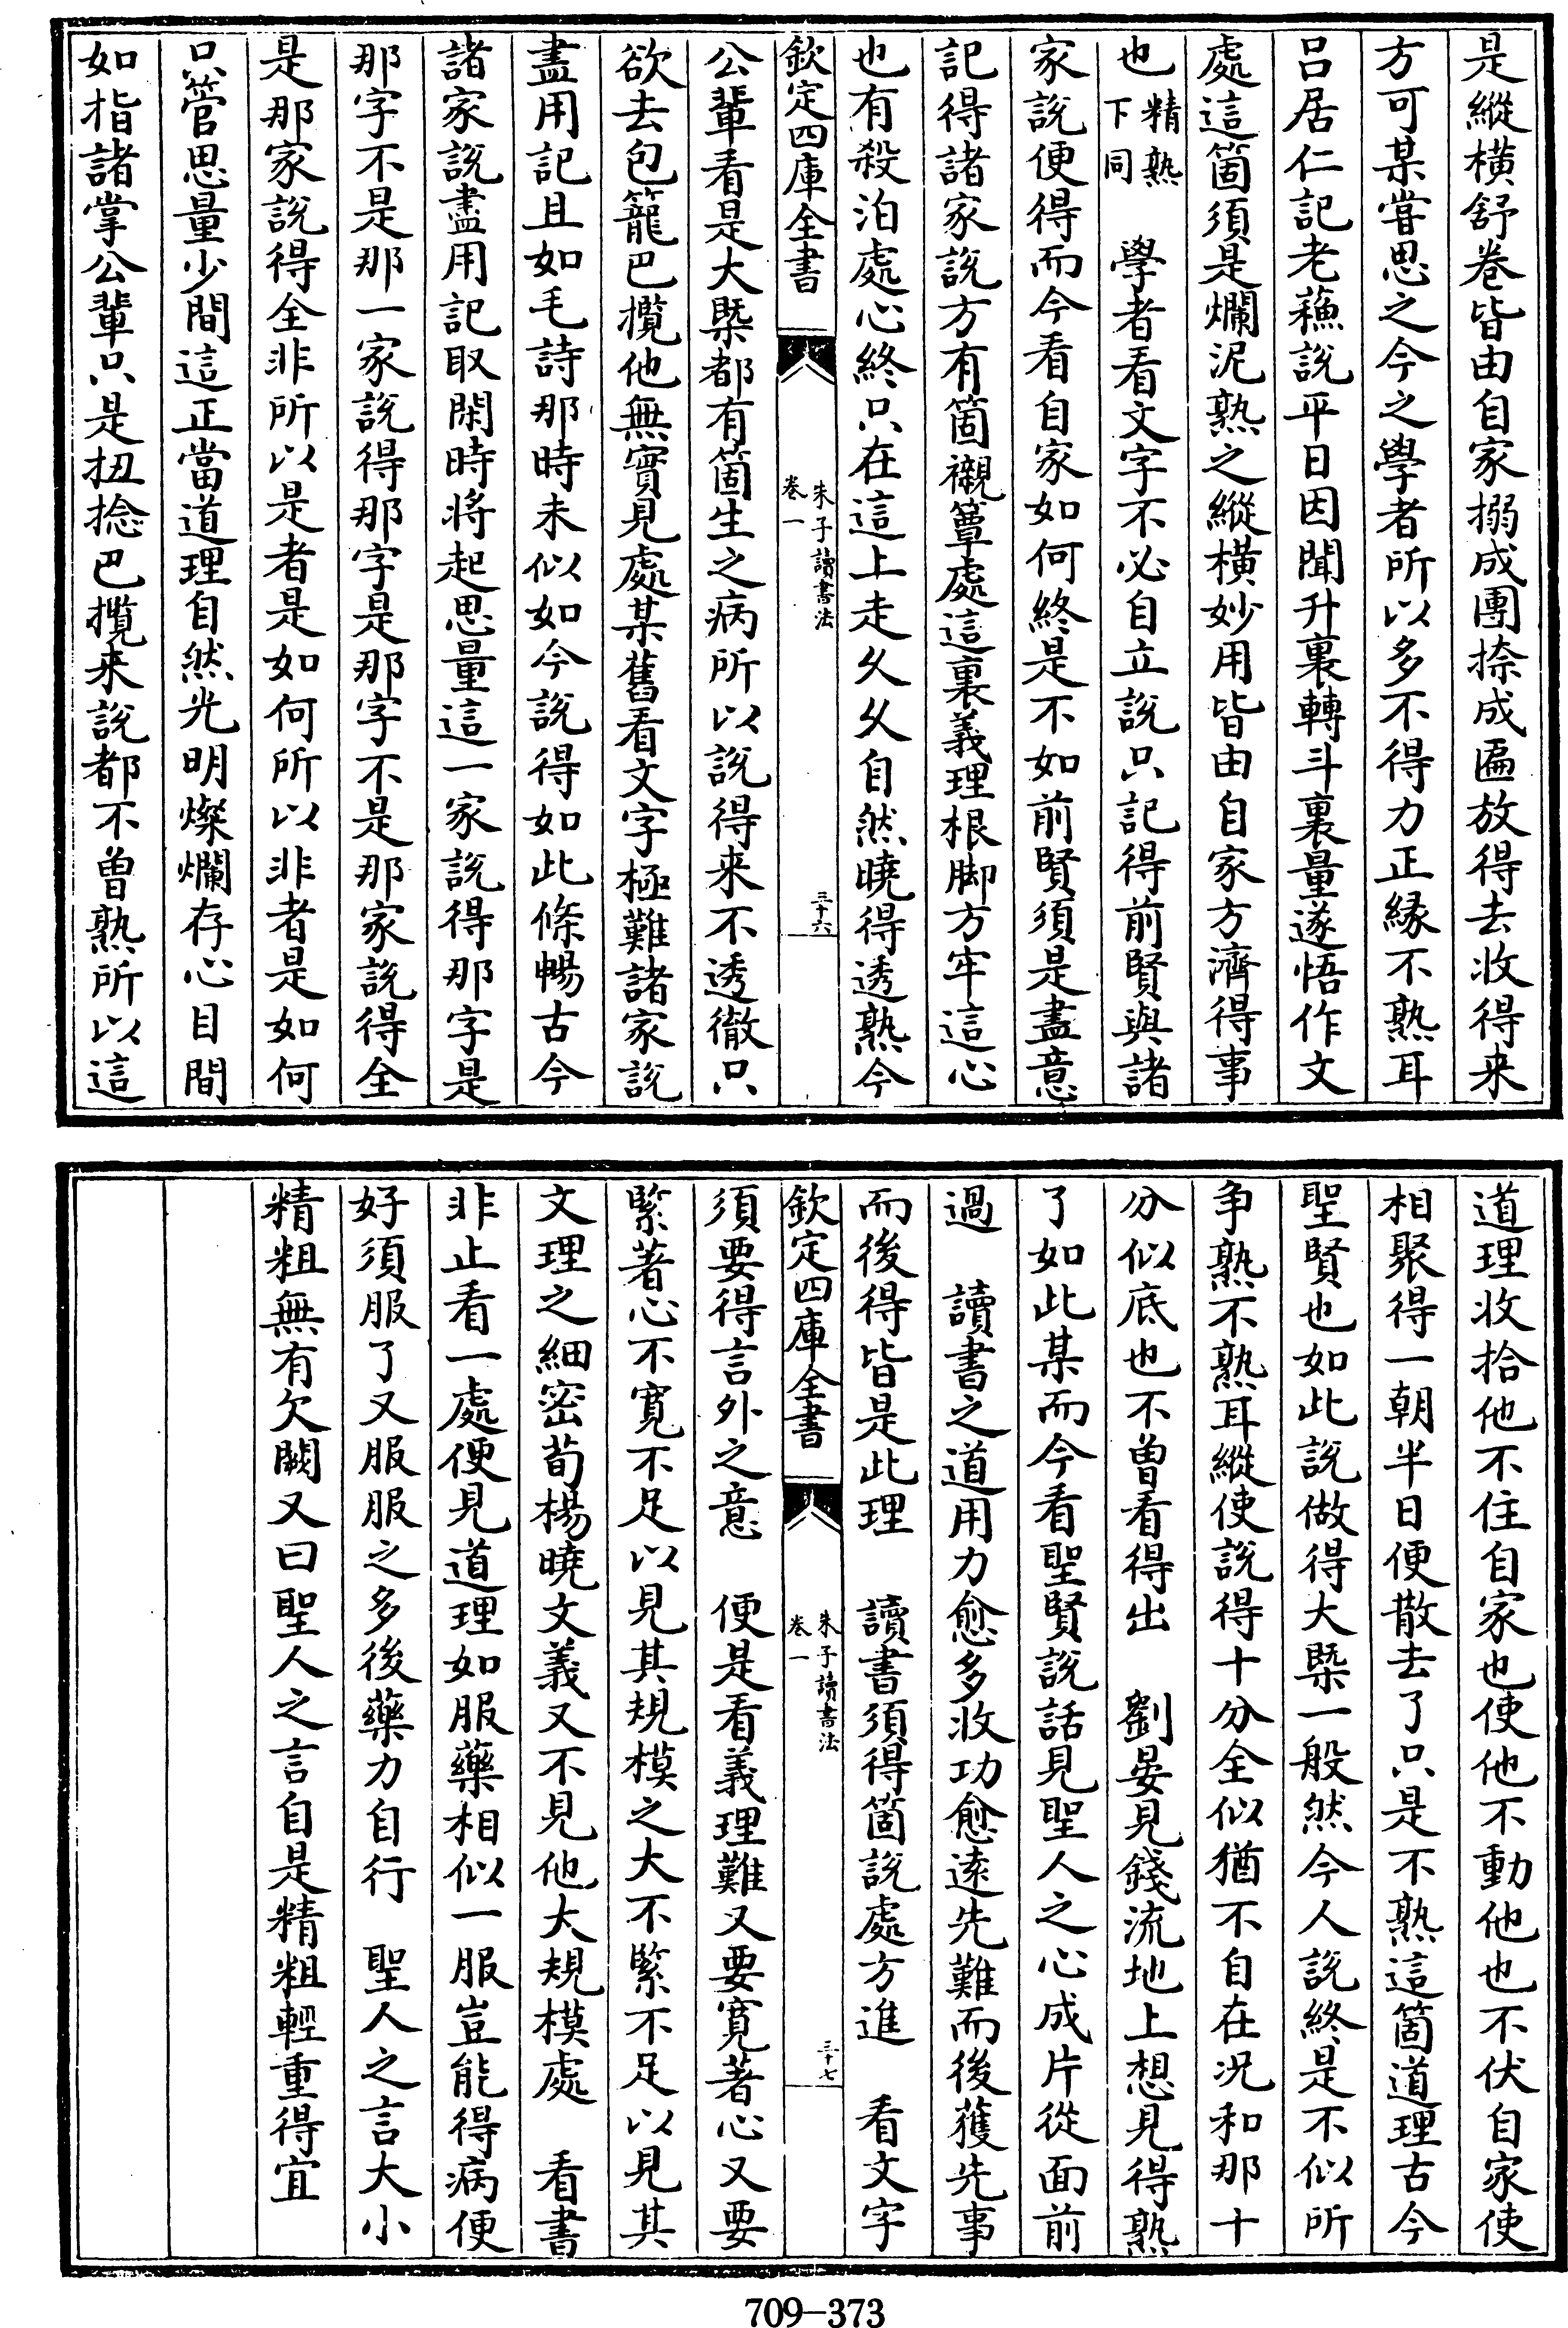 是縱橫舒卷皆由自家搦成團捺成匾放得去收得来
方可某嘗思之今之學者所以多不得力正緣不熟耳
吕居仁記老蘓說平日因聞升裏轉斗裏量遂悟作文
處這箇須是爛泥熟之縱橫妙用皆由自家方濟得事
也精熟下同　學者看文字不必自立說只記得前賢與諸
家說便得而今看自家如何終是不如前賢須是盡意
記得諸家說方有箇襯簟處這裏義理根脚方牢這心
也有殺泊處心終只在這上走久久自然曉得透熟今
欽定四庫全書
朱子讀書法
卷一
三十六
公輩看是大槩都有箇生之病所以說得来不透徹只
欲去包籠巴攬他無實見處某舊看文字極難諸家說
盡用記且如毛詩那時未似如今說得如此條暢古今
諸家說盡用記取閑時將起思量這一家說得那字是
那字不是那一家說得那字是那字不是那家說得全
是那家說得全非所以是者是如何所以非者是如何
只管思量少間這正當道理自然光明燦爛存心目間
如指諸掌公輩只是扭捻巴攬来說都不曽熟所以這
道理收拾他不住自家也使他不動他也不伏自家使
相聚得一朝半日便散去了只是不熟這箇道理古今
聖賢也如此說做得大槩一般然今人說終是不似所
争熟不熟耳縱使說得十分全似猶不自在况和那十
分似底也不曽看得出　劉晏見錢流地上想見得熟
了如此某而今看聖賢說話見聖人之心成片從面前
過　讀書之道用力愈多收功愈逺先難而後獲先事
而後得皆是此理　讀書須得箇說處方進　看文字
欽定四庫全書
朱子讀書法
卷一
三十七
須要得言外之意　便是看義理難又要寛著心又要
緊著心不寛不足以見其規模之大不緊不足以見其
文理之細密荀楊曉文義又不見他大規模處　看書
非止看一處便見道理如服藥相似一服豈能得病便
好須服了又服服之多後藥力自行　聖人之言大小
精粗無有欠闕又曰聖人之言自是精粗輕重得宜
709-373